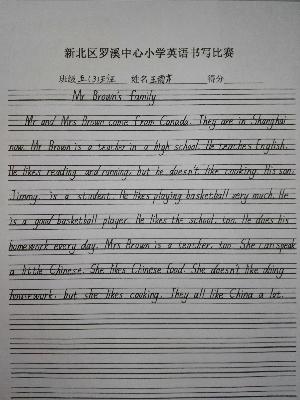 新北区罗溪中心小学英语书写比赛
班级 五(3)班 姓名 得分
Mr Brown's family
Mr and Mrs Brown come from Canada. They are in Shanghai
now. Mr Brown is a teacher in a high school. He teaches English.
He likes reading and running, but he doesn't like cooking. His son,
Jimmy, is a student. He likes playing basketball very much. He
is a good basketball player. He likes the school, too. He does his
homework every day. Mrs Brown is a teacher, too. She can speak
a little Chinese. She likes Chinese food. She doesn't like doing
housework, but she likes cooking. They all like China a lot.